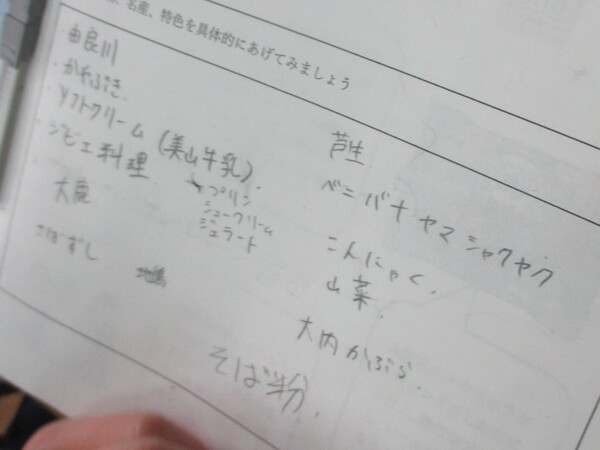 名産、特色を具体的にあげてみましょう
・由良川
・かやぶき
・ソフトクリーム(美山牛乳)
プリン
シュークリーム
ジェラート
・ジビエ料理
大鹿
さばずし
地鶏
芦生
ベニバナヤマシャクヤク
こんにゃく
山菜
大内かぶら
そば粉